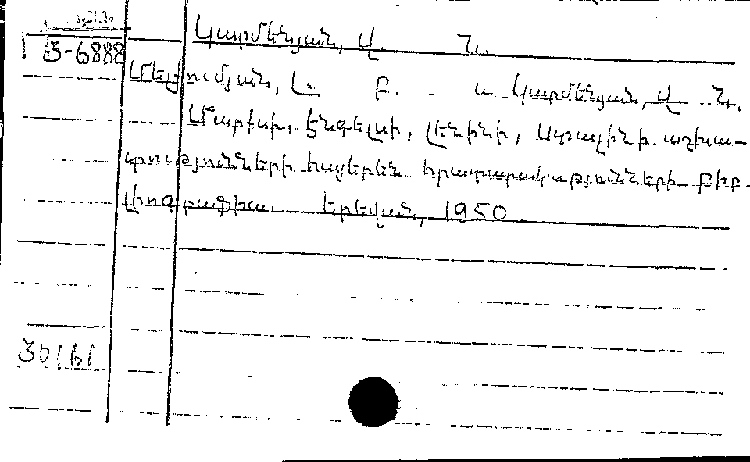 Յ-6888
Կարմենյան, Վ. Ն.
Մելքումյան, Լ. Բ. և Կարմենյան, Վ. Ն.
Մարքսի, Էնգելսի, Լենինի, Ստալինի աշխա-
տությունների հայերեն հրատարակությունների բիբ-
լիոգրաֆիա. Երեվան, 1950
30161